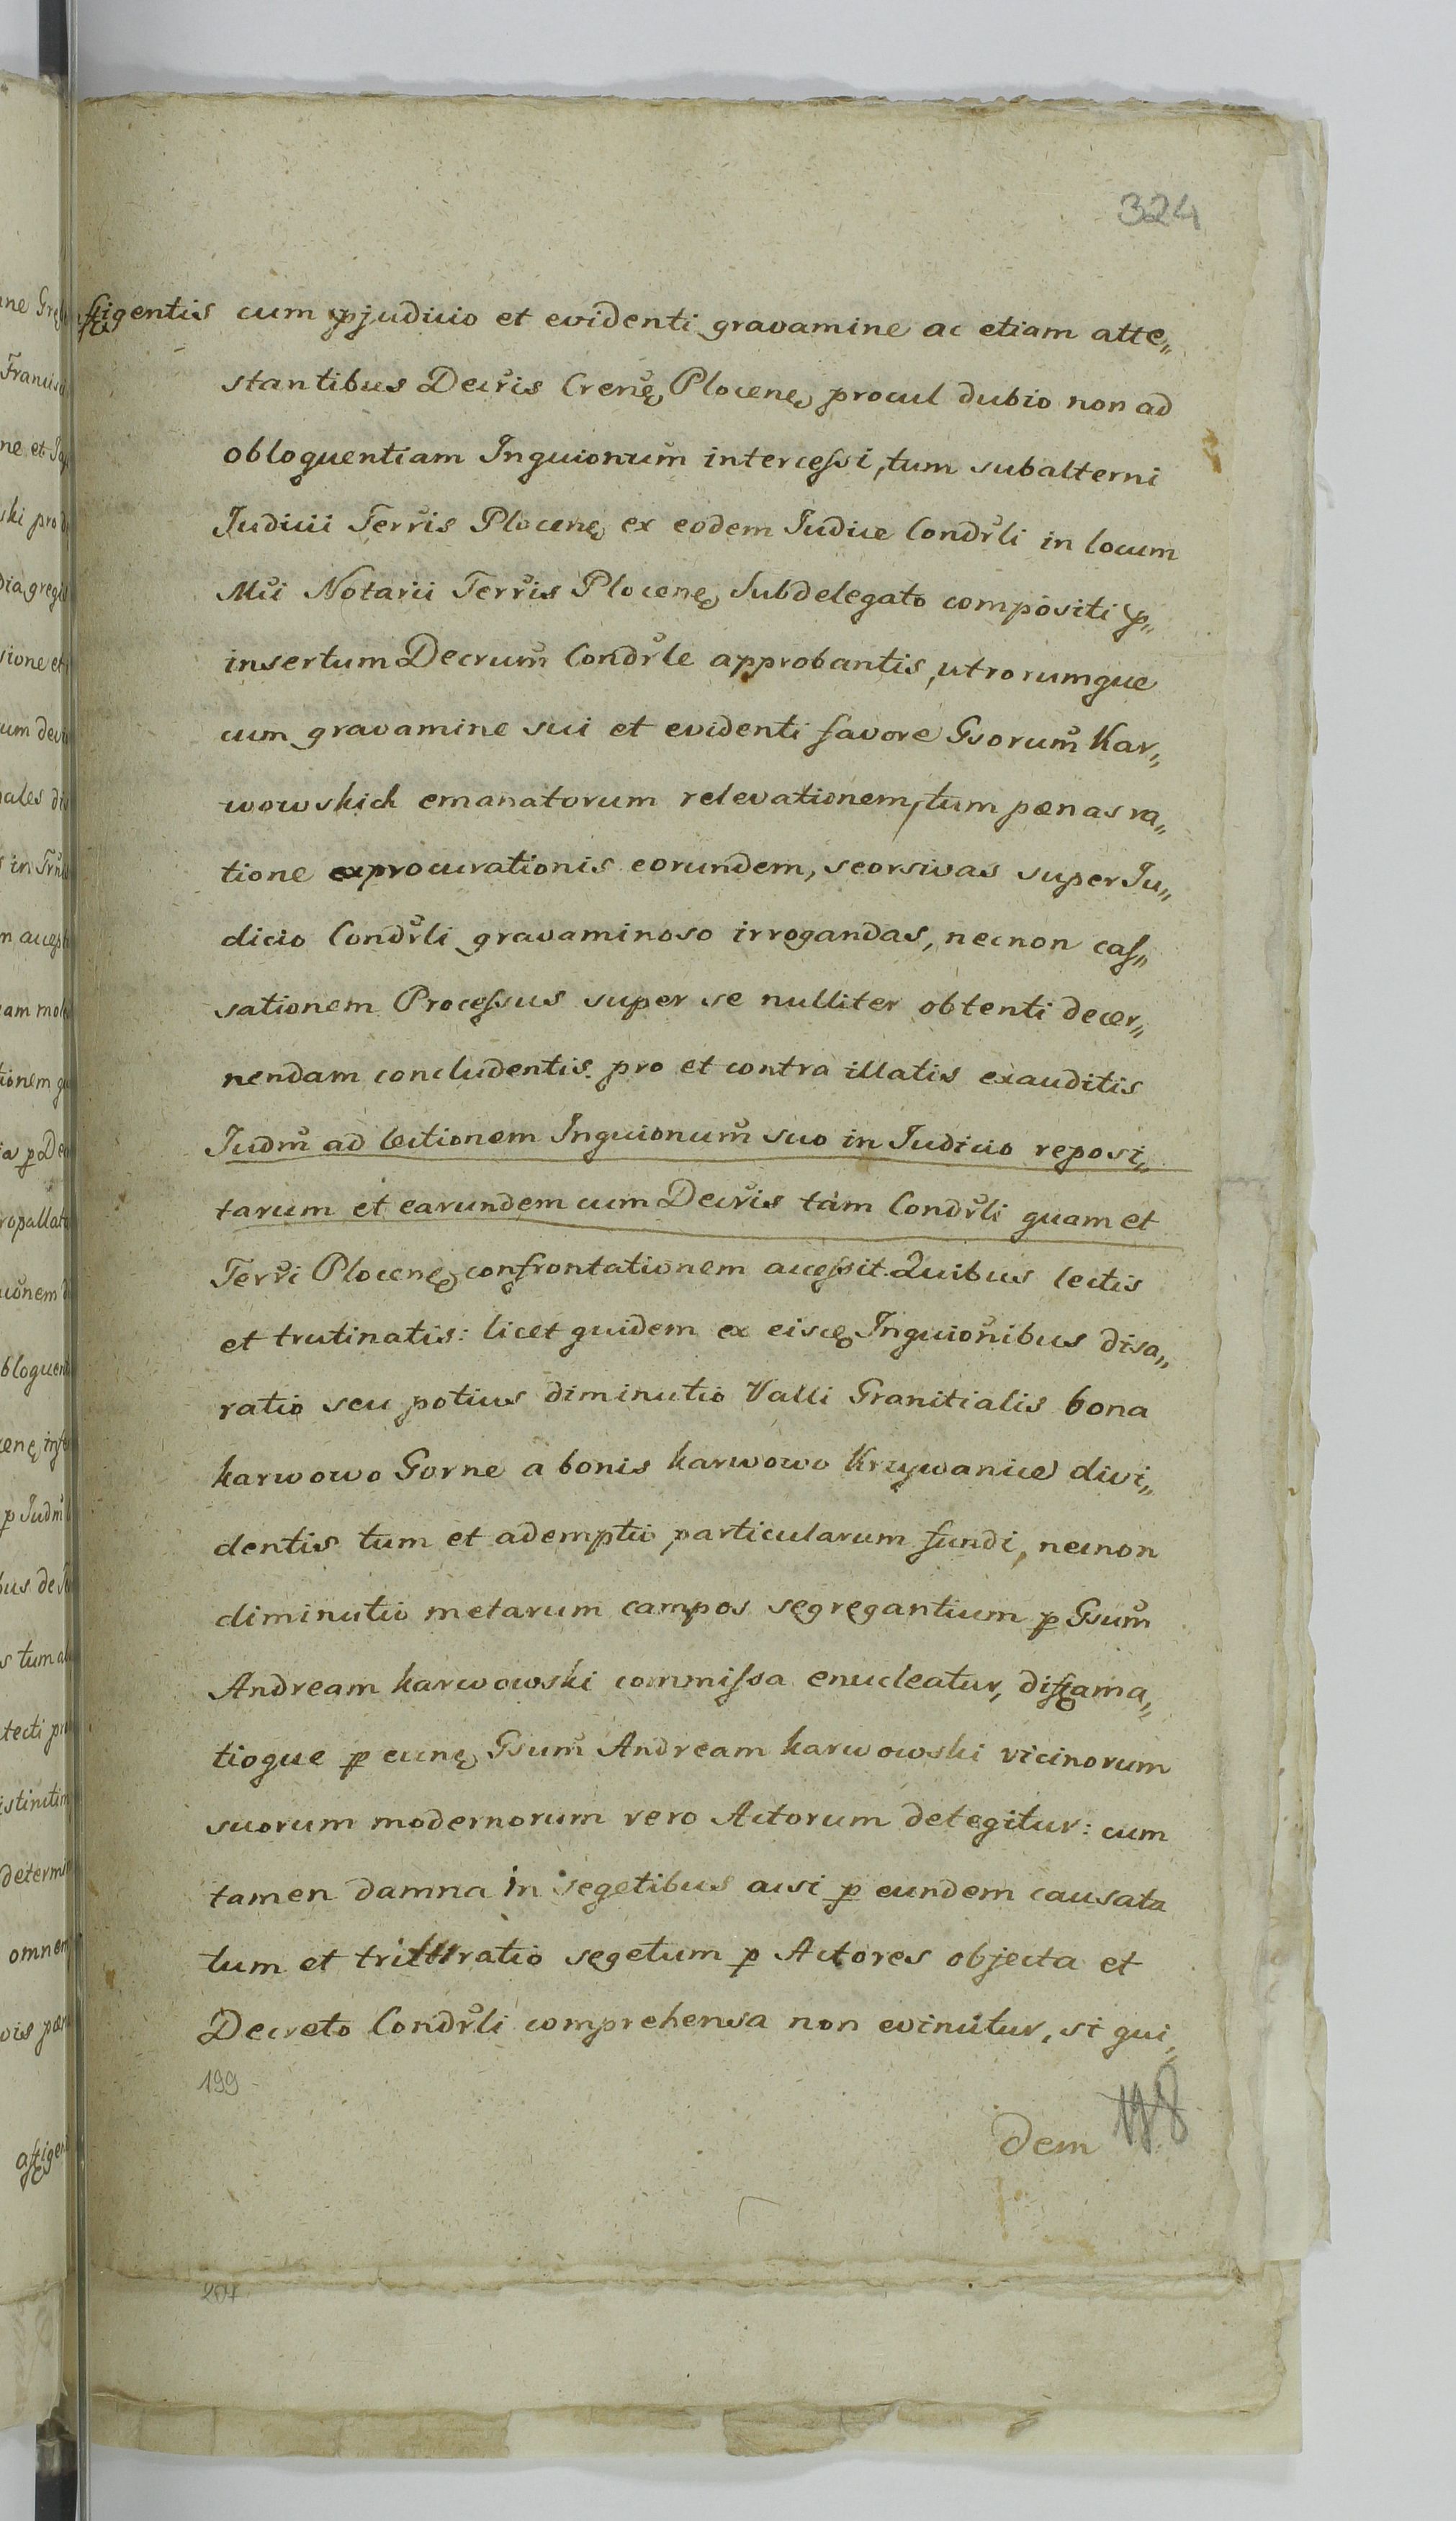 324
ffigentis cum pjudicio et evidenti gravamine ac etiam atte„
stantibus Decris Crenę Plocenę procul dubio non ad
obloquentiam Inquionum intercessi, tum subalterni
Judicii Terris Plocenę ex eodem Judice Condrli in locum
Mci Notarii Terris Plocenę Subdelegato compositi p„
insertum Decrum Condrle approbantis, utrorumque
cum gravamine sui et evidenti favore Gsorum Kar„
wowskich emanatorum relevationem, tum pænas ra„
tione exprocurationis eorundem, seorsivas super Ju„
dicio Condrli gravaminoso irrogandas, necnon cas„
sationem Processus super se nulliter obtenti decer„
nendam concludentis. pro et contra illatis exauditis
Judm ad lectionem Inquionum suo in Judicio reposi„
tarum et earundem cum Decris tam Condrli quam et
Terri Plocenę confrontationem accessit. Quibus lectis
et trutinatis: licet quidem ex eiscę Inquionibus disa„
ratio seu potius diminutio Valli Granitialis bona
Karwowo Gorne a bonis Karwowo Krzywanice divi„
dentis tum et ademptio particularum fundi, necnon
diminutio metarum campos segregantium p Gsum
Andream Karwowski commissa enucleatur, diffama„
tioque p eunę Gsum Andream Karwowski vicinorum
suorum modernorum vero Actorum detegitur: cum
tamen damna in segetibus acsi p eundem causata
tum et trituratio segetum p Actores objecta et
Decreto Condrli comprehensa non evincitur, si qui„
199
dem